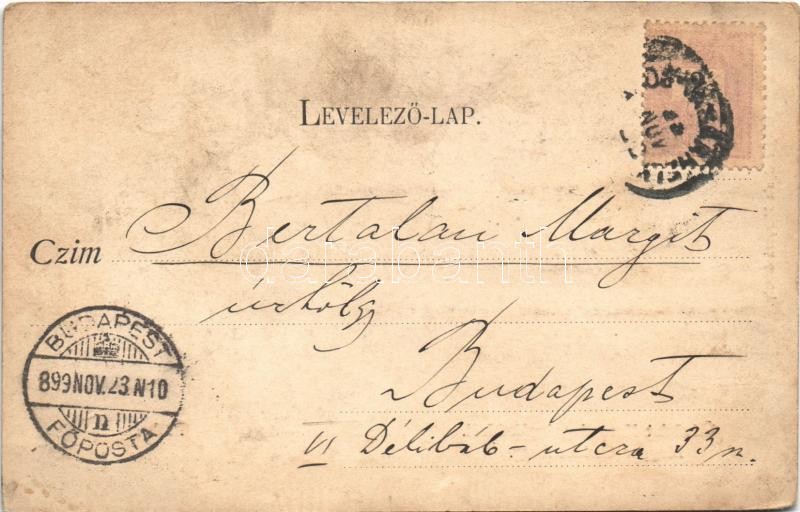 LEVELEZŐ-LAP.
Czim Bertalan Margit
úrhölgy
Budapest
VI Délibáb-utcza 33 n.
BUDAPEST
899 NOV. 23. N10
n
FŐPOSTA
NOV
darabanth